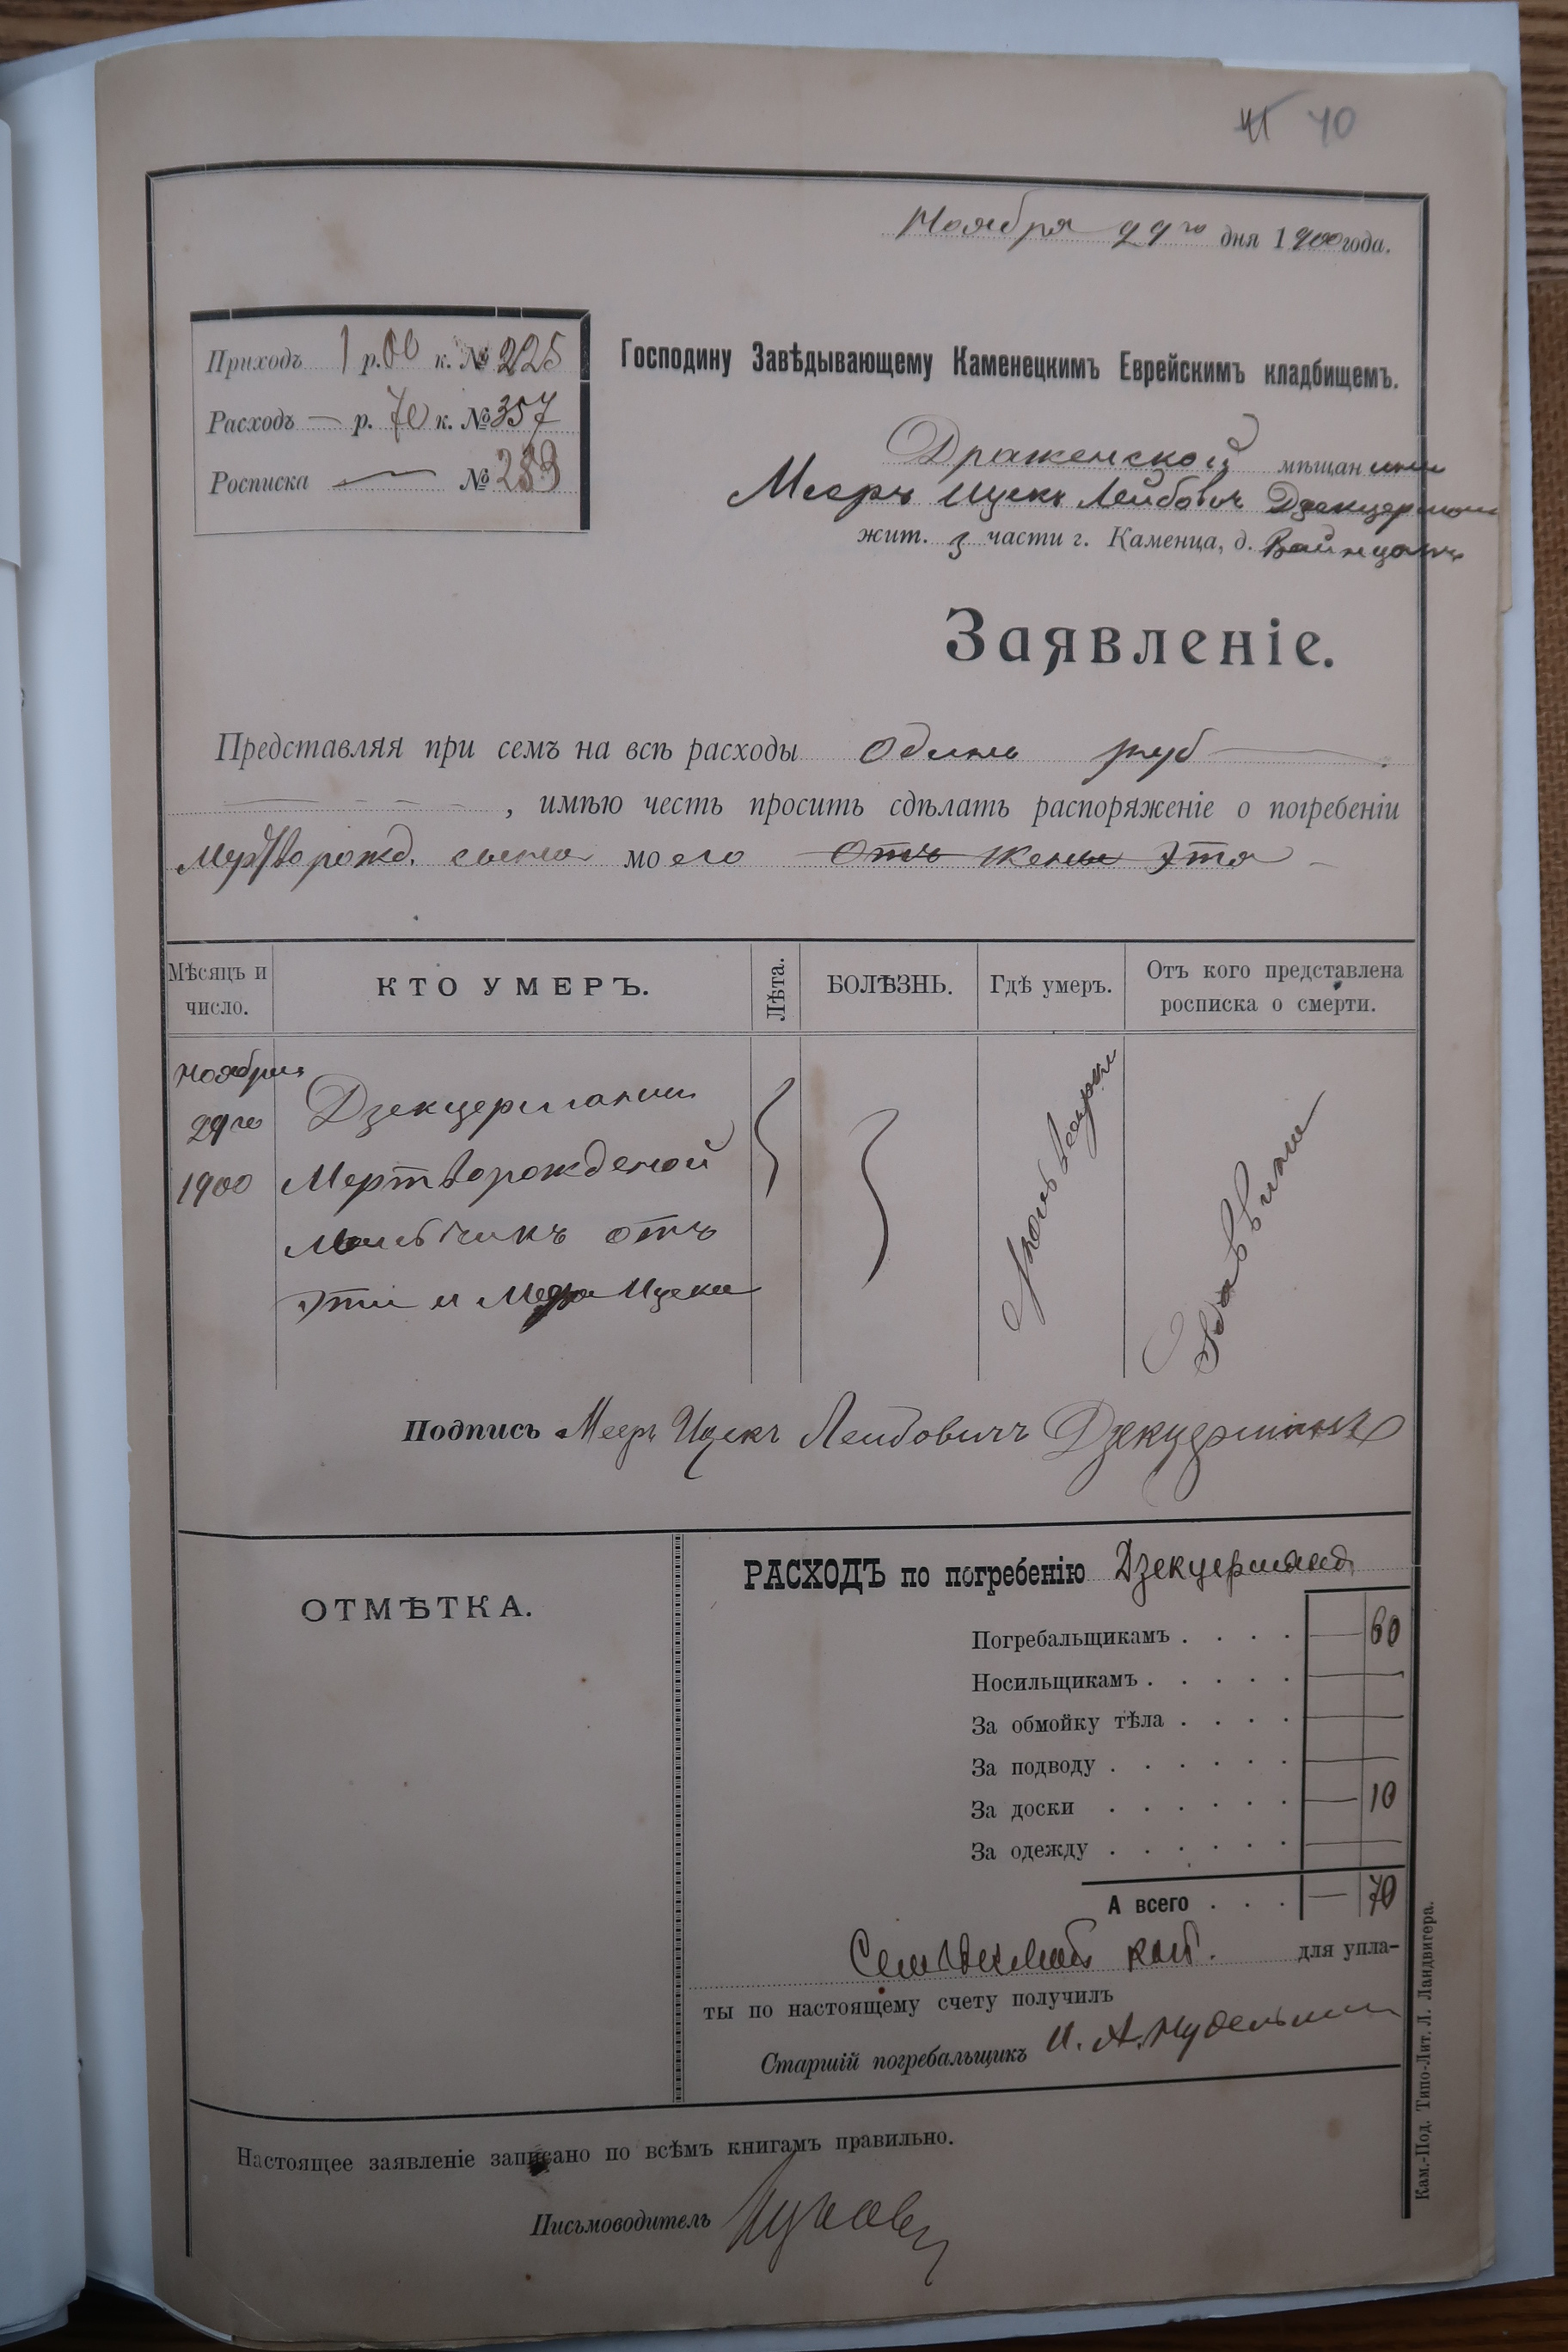 41 40
Ноября 29го дня 1900 года.
Приходъ 1 р. 00 к. № 225
Расходъ — р. 70 к. № 357
Росписка — № 239
Господину Завѣдывающему Каменецкимъ Еврейскимъ кладбищемъ.
мѣщан
Мееръ Ицекъ Лейбович Дзекцерман
жит. 3 части г. Каменца, д.
Заявленіе.
Представляя при семъ на всѣ расходы Одинъ руб
, имѣю честь просить сдѣлать распоряженіе о погребеніи
Мертворожд. сына моего отъ жены Этя
Мѣсяцъ и число.
КТО УМЕРЪ.
Лѣта.
БОЛѢЗНЬ.
Гдѣ умеръ.
Отъ кого представлена росписка о смерти.
Ноября
29го
1900
Дзекцерманъ
Мертворожденой
Мальчикъ отъ
Эти и Меера Ицека
Подпись Мееръ Ицекъ Леибовичъ Дзекцерманъ
ОТМѢТКА.
РАСХОДЪ по погребенію Дзекцермана
Погребальщикамъ . . . . — 60
Носильщикамъ . . . . . —
За обмойку тѣла . . . . —
За подводу . . . . . . —
За доски . . . . . . — 10
За одежду . . . . . . —
А всего . . . — 70
Семьдесятъ коп. для упла-
ты по настоящему счету получилъ
Старшій погребальщикъ И. А. Нудельман
Настоящее заявленіе записано по всѣмъ книгамъ правильно.
Письмоводитель
Кам.-Под. Типо-Лит. Л. Ландвигера.